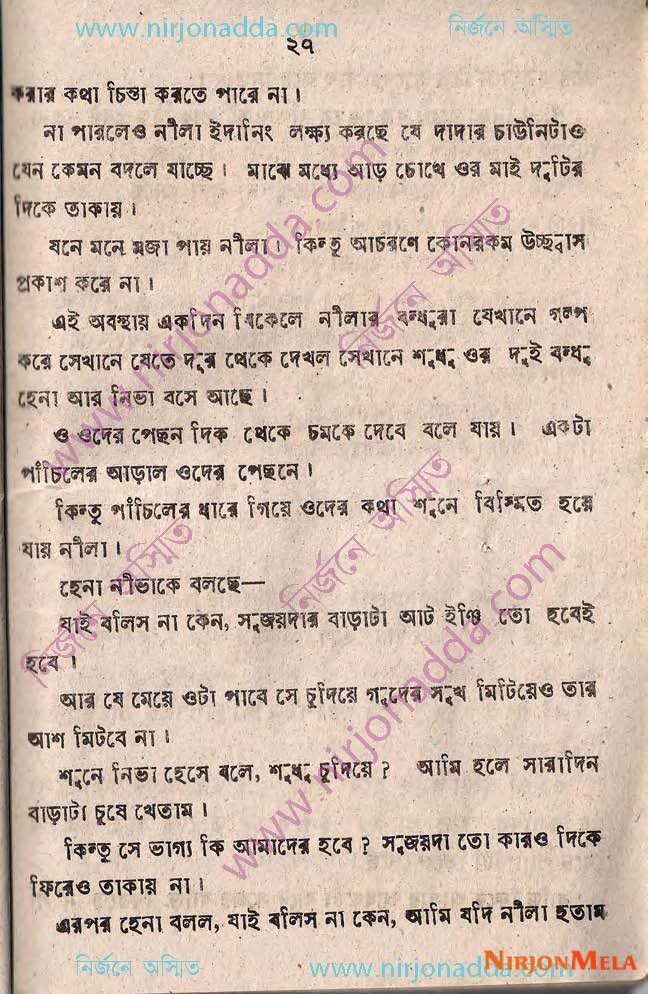 www.nirjonadda.com নির্জনে অস্মিত
২৭
করার কথা চিন্তা করতে পারে না।
না পারলেও নীলা ইদানিং লক্ষ্য করছে যে দাদার চাউনিটাও
যেন কেমন বদলে যাচ্ছে। মাঝে মধ্যে আড় চোখে ওর মাই দুটির
দিকে তাকায়।
মনে মনে মজা পায় নীলা। কিন্তু আচরণে কোনরকম উচ্ছ্বাস
প্রকাশ করে না।
এই অবস্থায় একদিন বিকেলে নীলার বন্ধুরা যেখানে গল্প
করে সেখানে যেতে দূর থেকে দেখল সেখানে শুধু ওর দুই বন্ধু
হেনা আর নিভা বসে আছে।
ও ওদের পেছন দিক থেকে চমকে দেবে বলে যায়। একটা
পাঁচিলের আড়াল ওদের পেছনে।
কিন্তু পাঁচিলের ধারে গিয়ে ওদের কথা শুনে বিস্মিত হয়ে
যায় নীলা।
হেনা নীভাকে বলছে—
যাই বলিস না কেন, সুজয়দার বাড়াটা আট ইঞ্চি তো হবেই
হবে।
আর যে মেয়ে ওটা পাবে সে চুদিয়ে গুদের সুখ মিটিয়েও তার
আশ মিটবে না।
শুনে নিভা হেসে বলে, শুধু চুদিয়ে? আমি হলে সারাদিন
বাড়াটা চুষে খেতাম।
কিন্তু সে ভাগ্য কি আমাদের হবে? সুজয়দা তো কারও দিকে
ফিরেও তাকায় না।
এরপর হেনা বলল, যাই বলিস না কেন, আমি যদি নীলা হতাম
নির্জনে অস্মিত www.nirjonadda.com
NIRJONMELA
www.nirjonadda.com
নির্জনে অস্মিত
নির্জনে অস্মিত
নির্জনে অস্মিত
www.nirjonadda.com